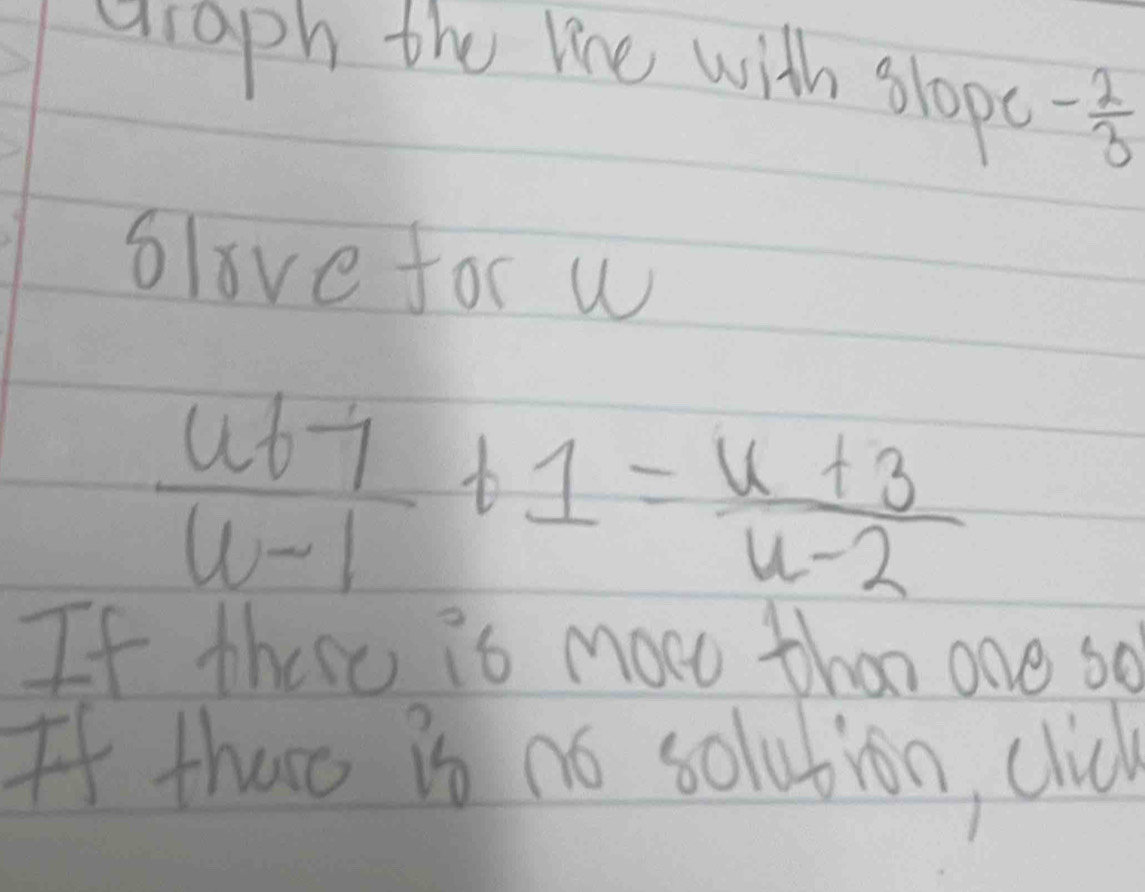 Graph the line with slope - 2/3
Slove for u
u+7/u-1 + 1 = u+3/u-2
If there is more than one so
If there is no solution, click